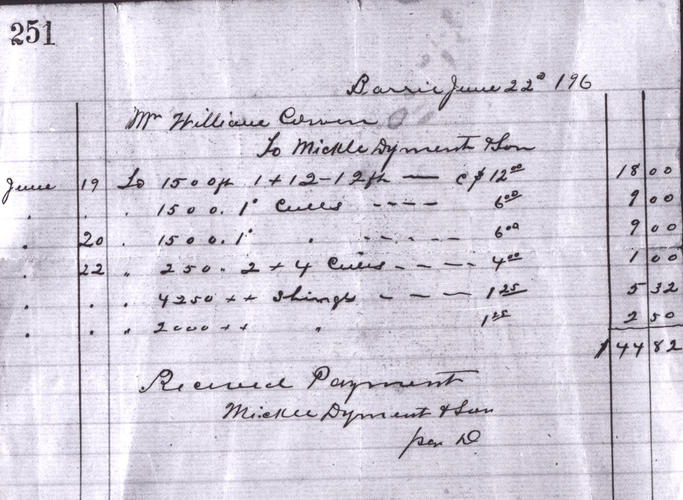 251
Barrie June 22d 196
Mr William Cowan
To Mickle Dyment & Son
June 19 To 1500 ft 1+12-12 ft — @ $12 00 18 00
" " " 1500 " 1" Culls ---- 6 00 9 00
" 20 " 1500 " 1" " ----- 6 00 9 00
" 22 " 250 " 2 + 4 Culls ---- 4 00 1 00
" " " 4250 ++ Shingls --- 1 25 5 32
" " " 2000 ++ " 1 25 2 50
$44 82
Received Payment
Mickle Dyment & Son
per D